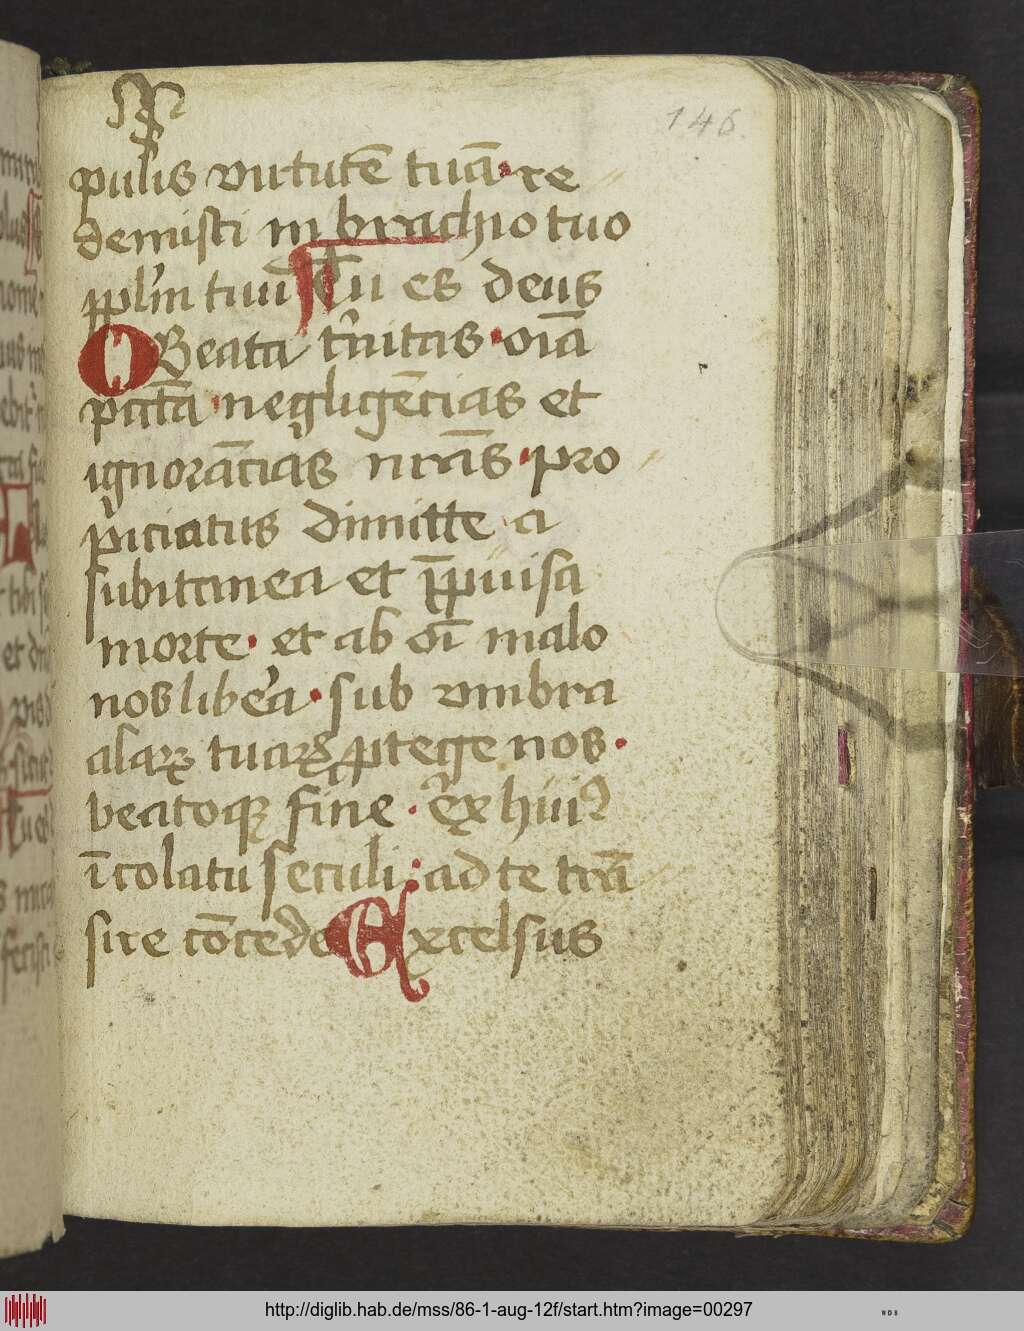 146.
pulis virtutē tuā · re
demisti in brachio tuo
pp̄lm tuū Tu es deus
O Beata t̓nitas · oīa
pctā̄ · negligēcias et
ignorācias nr̄as · pro
piciatus dimitte · a
subitanea et īp̄uisa
morte · et ab oī malo
nos lib̓a · sub vmbra
alaꝝ tuaꝝ ꝓtege nos ·
beatoqꝫ fine · ex hui⁹
īcolatu seculi : ad te trā
sire cōcede Excelsus
http://diglib.hab.de/mss/86-1-aug-12f/start.htm?image=00297